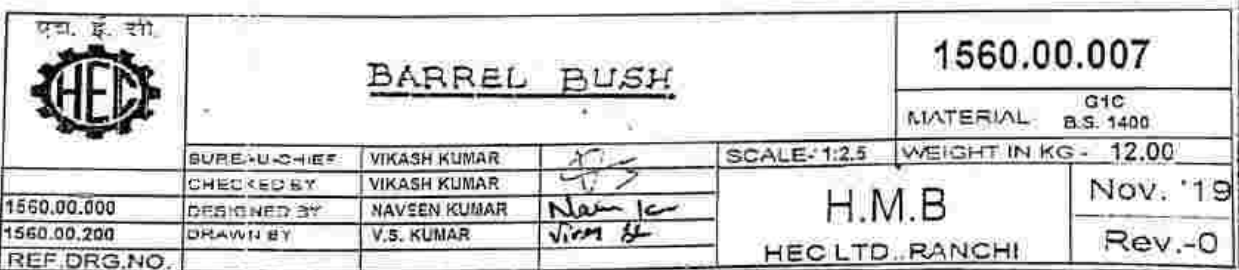 एच. ई. सी.
HEC
BARREL BUSH
1560.00.007
MATERIAL G1C
B.S. 1400
BUREAU CHIEF VIKASH KUMAR SCALE- 1:2.5 WEIGHT IN KG - 12.00
CHECKED BY VIKASH KUMAR
1560.00.000 DESIGNED BY NAVEEN KUMAR
1560.00.200 DRAWN BY V.S. KUMAR
REF.DRG.NO.
H.M.B
HEC LTD..RANCHI
Nov. '19
Rev.-0